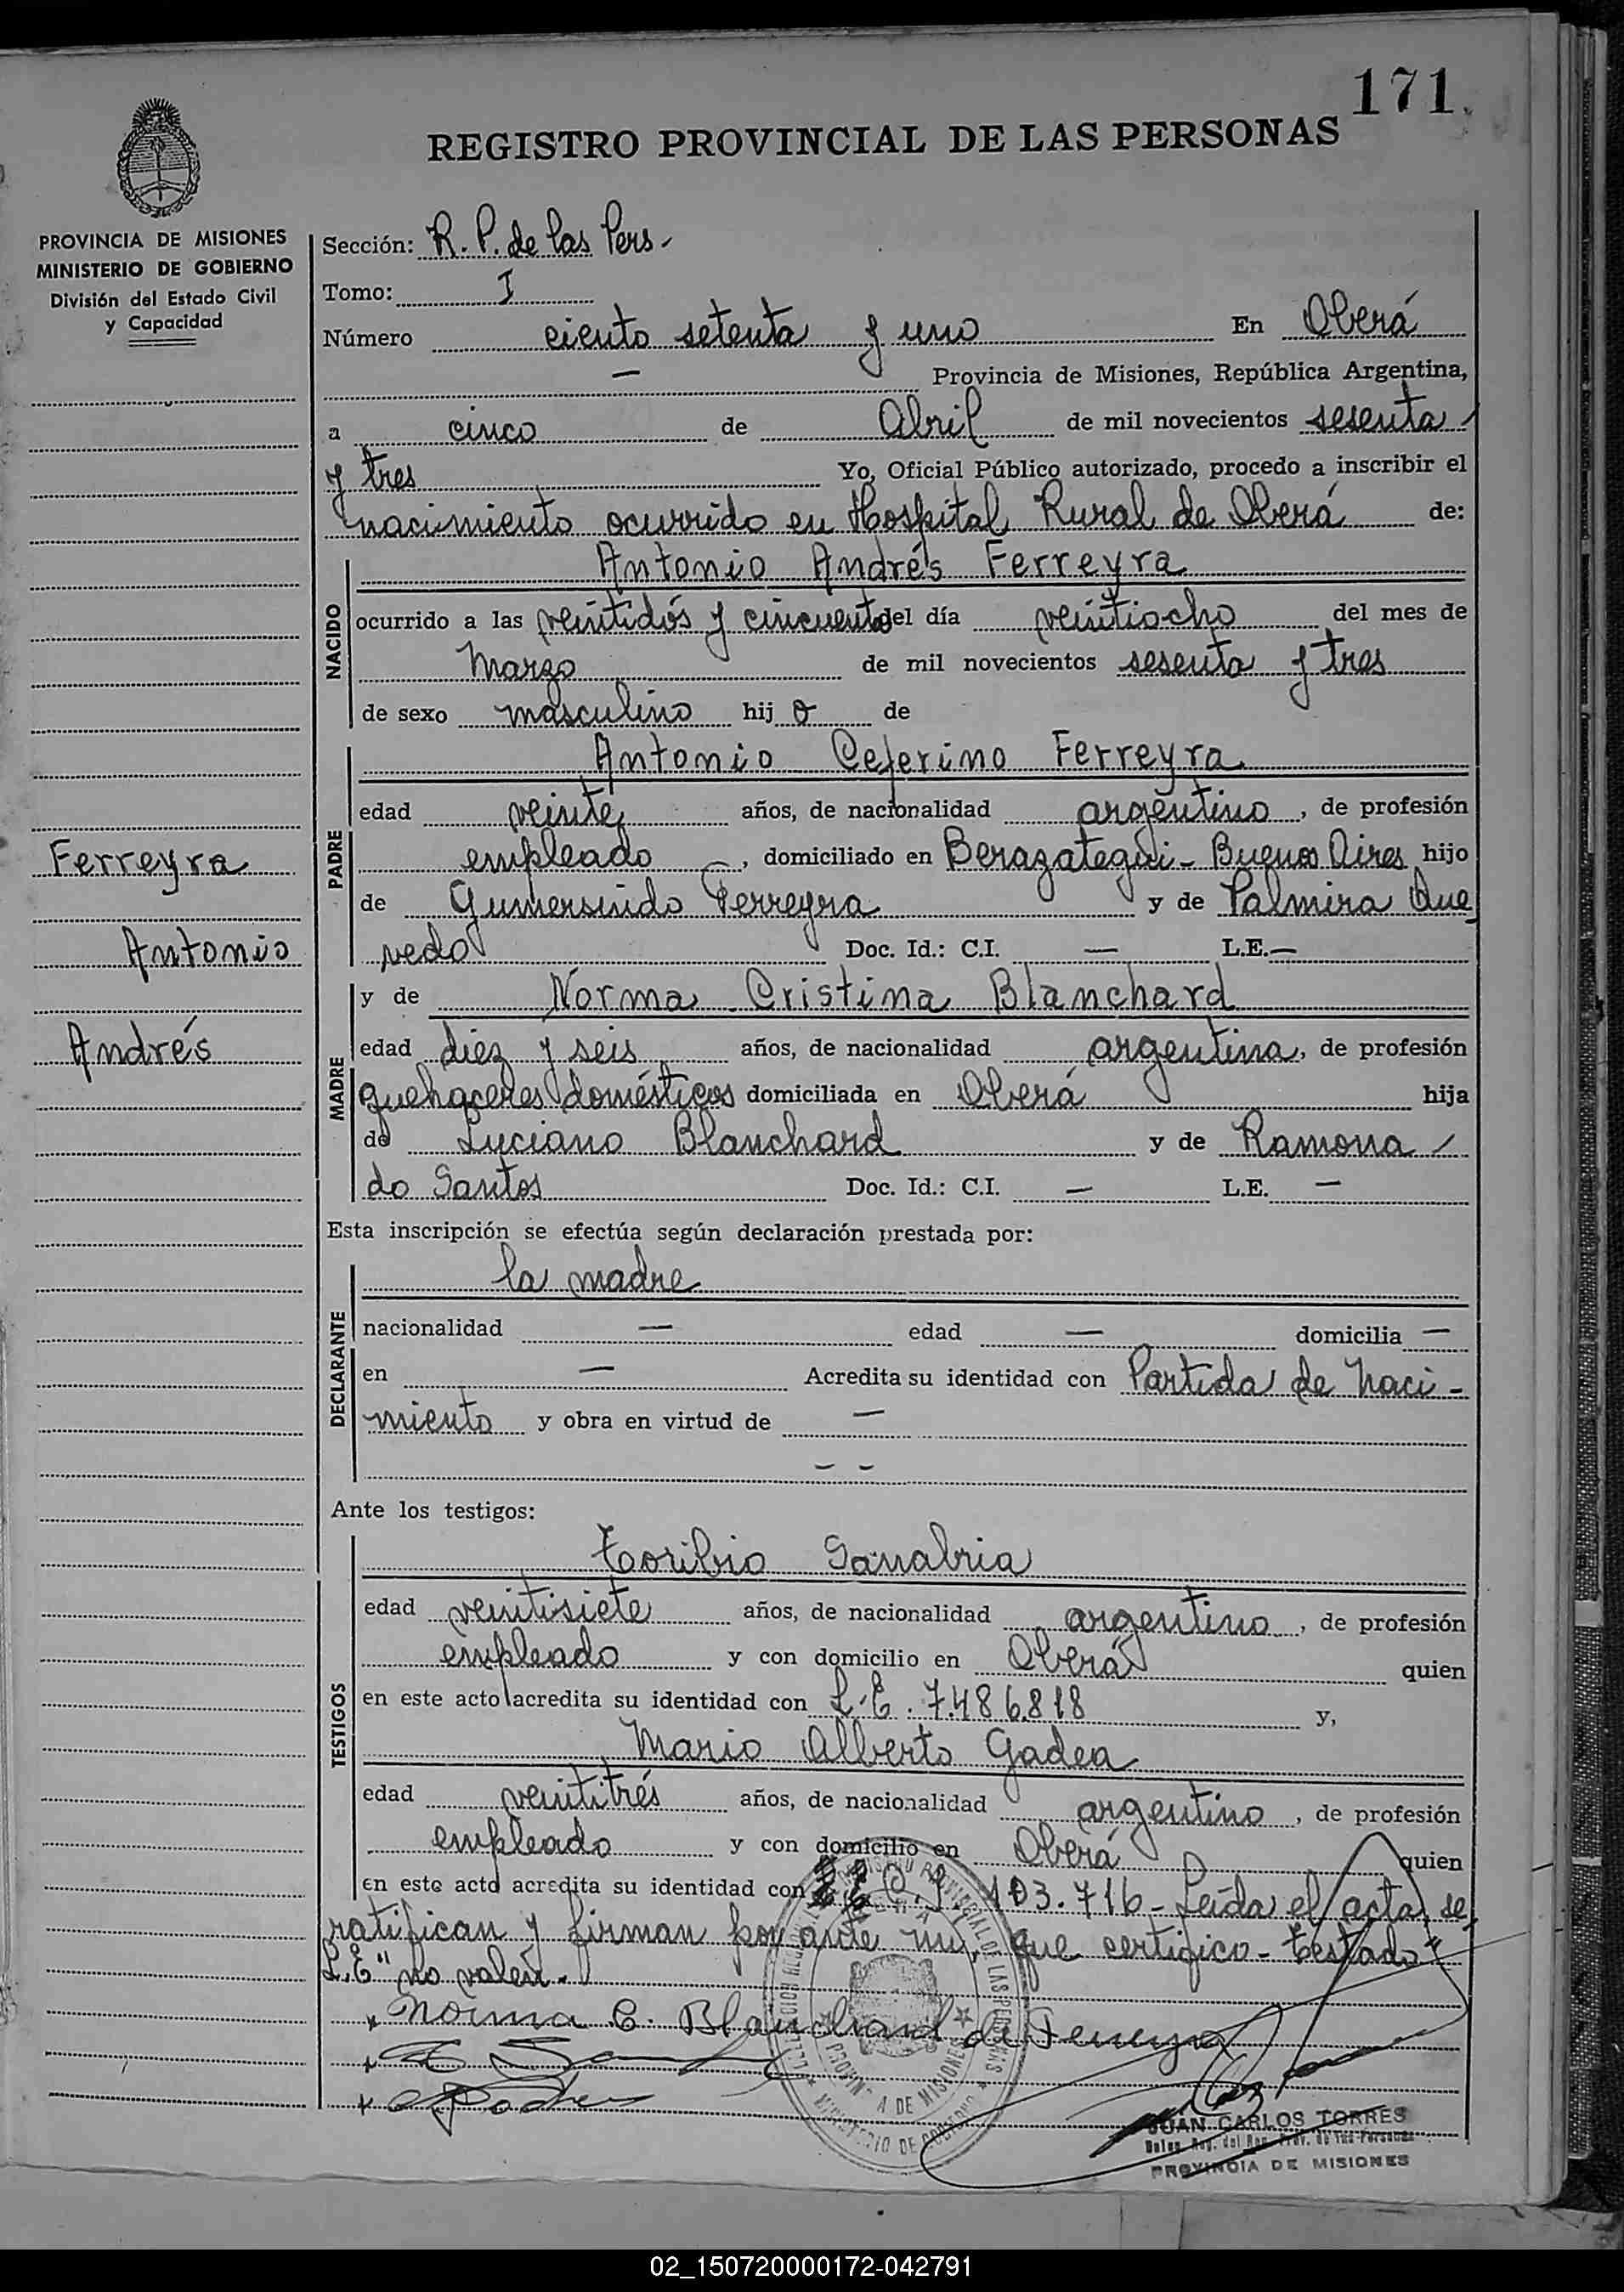 171
REGISTRO PROVINCIAL DE LAS PERSONAS
PROVINCIA DE MISIONES
MINISTERIO DE GOBIERNO
División del Estado Civil
y Capacidad
Ferreyra
Antonio
Andrés
Sección: R. P. de las Pers.
Tomo: I
Número ciento setenta y uno En Oberá
— Provincia de Misiones, República Argentina,
a cinco de Abril de mil novecientos sesenta
y tres Yo, Oficial Público autorizado, procedo a inscribir el
nacimiento ocurrido en Hospital Rural de Oberá de:
NACIDO
Antonio Andrés Ferreyra
ocurrido a las veintidós y cincuenta del día veintiocho del mes de
Marzo de mil novecientos sesenta y tres
de sexo masculino hij o de
PADRE
Antonio Ceferino Ferreyra
edad veinte años, de nacionalidad argentino, de profesión
empleado, domiciliado en Berazategui - Buenos Aires hijo
de Gumersindo Ferreyra y de Palmira Que
vedo Doc. Id.: C.I. — L.E. —
MADRE
y de Norma Cristina Blanchard
edad diez y seis años, de nacionalidad argentina, de profesión
quehaceres domésticos domiciliada en Oberá hija
de Luciano Blanchard y de Ramona
do Santos Doc. Id.: C.I. — L.E. —
Esta inscripción se efectúa según declaración prestada por:
DECLARANTE
la madre
nacionalidad — edad — domicilia —
en — Acredita su identidad con Partida de naci-
miento y obra en virtud de —
— —
Ante los testigos:
TESTIGOS
Toribio Sanabria
edad veintisiete años, de nacionalidad argentino, de profesión
empleado y con domicilio en Oberá quien
en este acto acredita su identidad con L.E. 7.486.818 y,
Mario Alberto Gadea
edad veintitrés años, de nacionalidad argentino, de profesión
empleado y con domicilio en Oberá quien
en este acto acredita su identidad con 103.716 - Leída el acta, se
ratifican y firman por ante mí, que certifico - Testado "
L.E" no valen.
Norma C. Blanchard de Ferreyra
JUAN CARLOS TORRES
PROVINCIA DE MISIONES
REGISTRO PROVINCIAL DE LAS PERSONAS
PROVINCIA DE MISIONES
MINISTERIO DE GOBIERNO
02_150720000172-042791